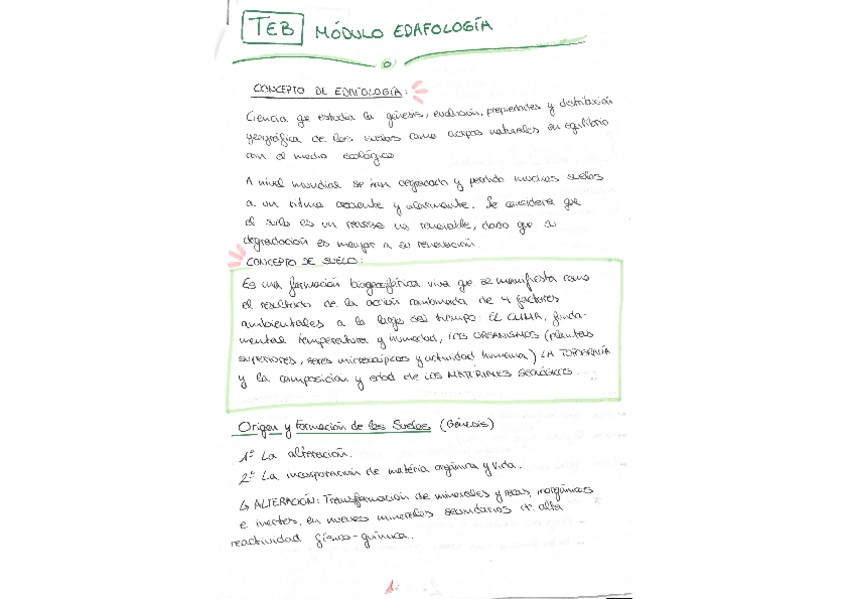 TEB MÓDULO EDAFOLOGÍA
CONCEPTO DE EDAFOLOGÍA:
Ciencia que estudia la génesis, evolución, propiedades y distribución
geográfica de los suelos como cuerpos naturales en equilibrio
con el medio ecológico
A nivel mundial se han degradado y perdido muchos suelos
a un ritmo creciente y alarmante. Se considera que
el suelo es un recurso no renovable, dado que su
degradación es mayor a su renovación.
CONCEPTO DE SUELO:
Es una formación biogeofísica viva que se manifiesta como
el resultado de la acción combinada de 4 factores
ambientales a lo largo del tiempo: EL CLIMA, funda-
mental temperatura y humedad, LOS ORGANISMOS (plantas
superiores, seres microscópicos y actividad humana) LA TOPOGRAFÍA
y la composición y edad de LOS MATERIALES GEOLÓGICOS.
Origen y Formación de los Suelos (Génesis)
1º La alteración.
2º La incorporación de matéria orgánica y vida.
↳ ALTERACIÓN: Transformación de minerales y rocas, inorgánicos
e inertes, en nuevos minerales secundarios de alta
reactividad físico-química.
1.